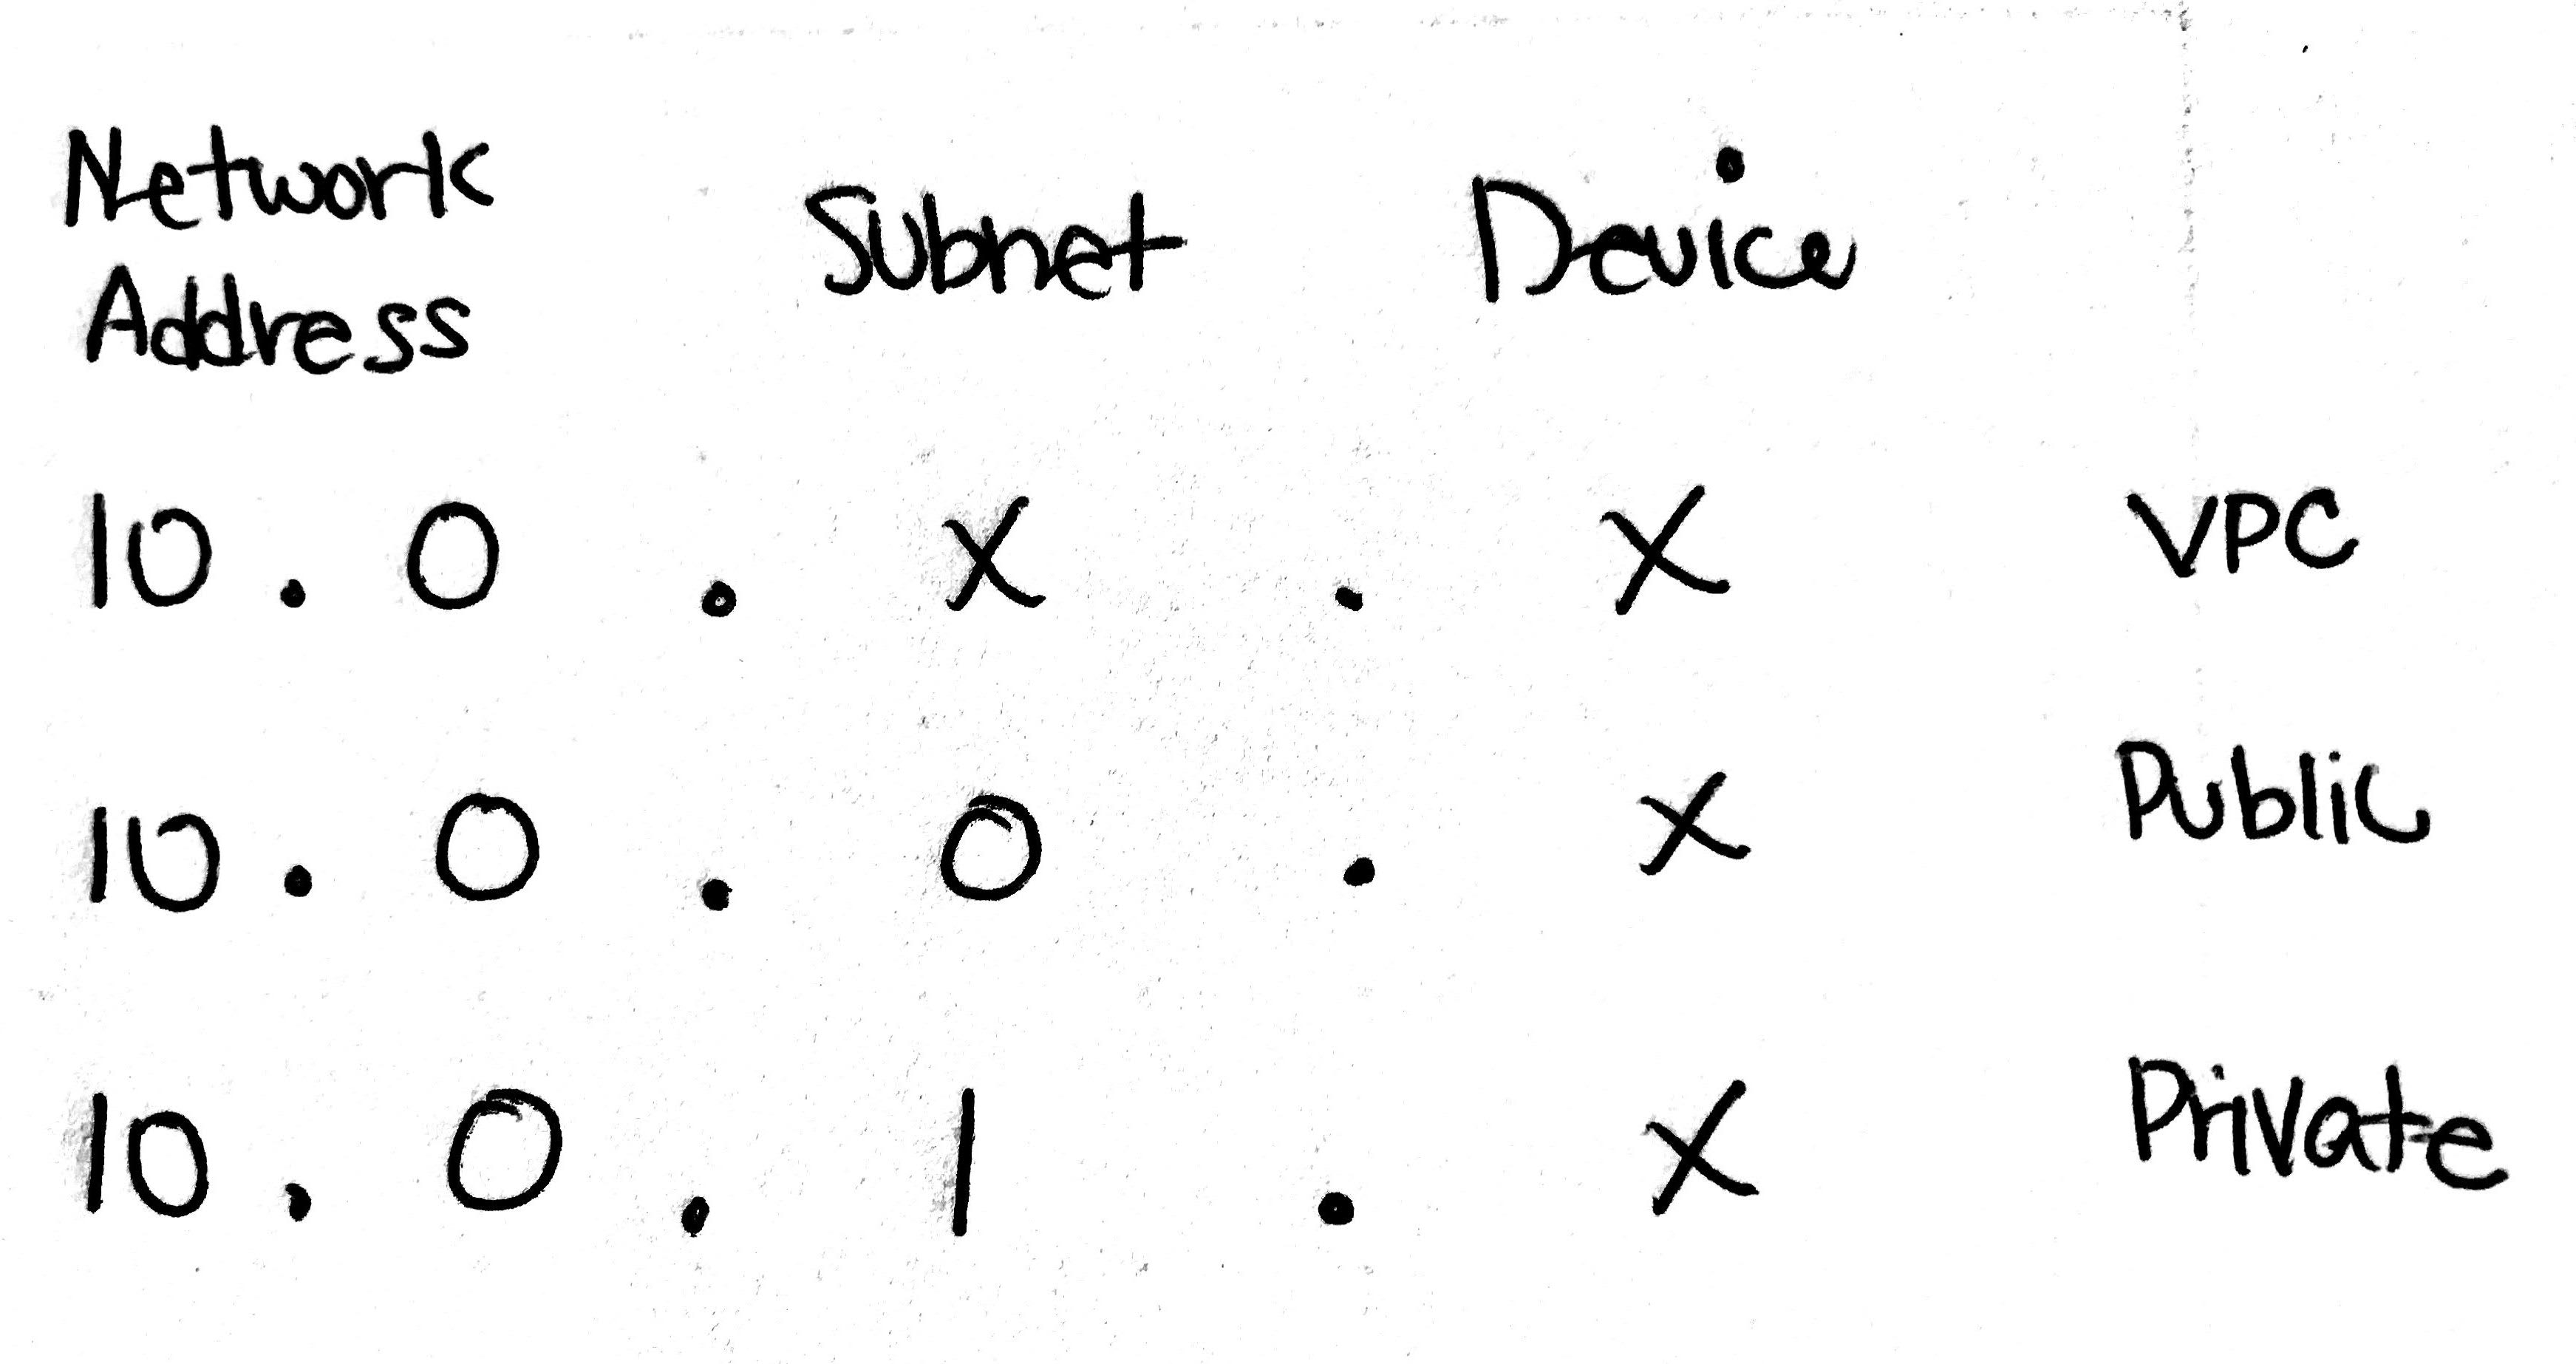 Network
Address Subnet Device
10 . 0 . x . x VPC
10 . 0 . 0 . x Public
10 . 0 . 1 . x Private